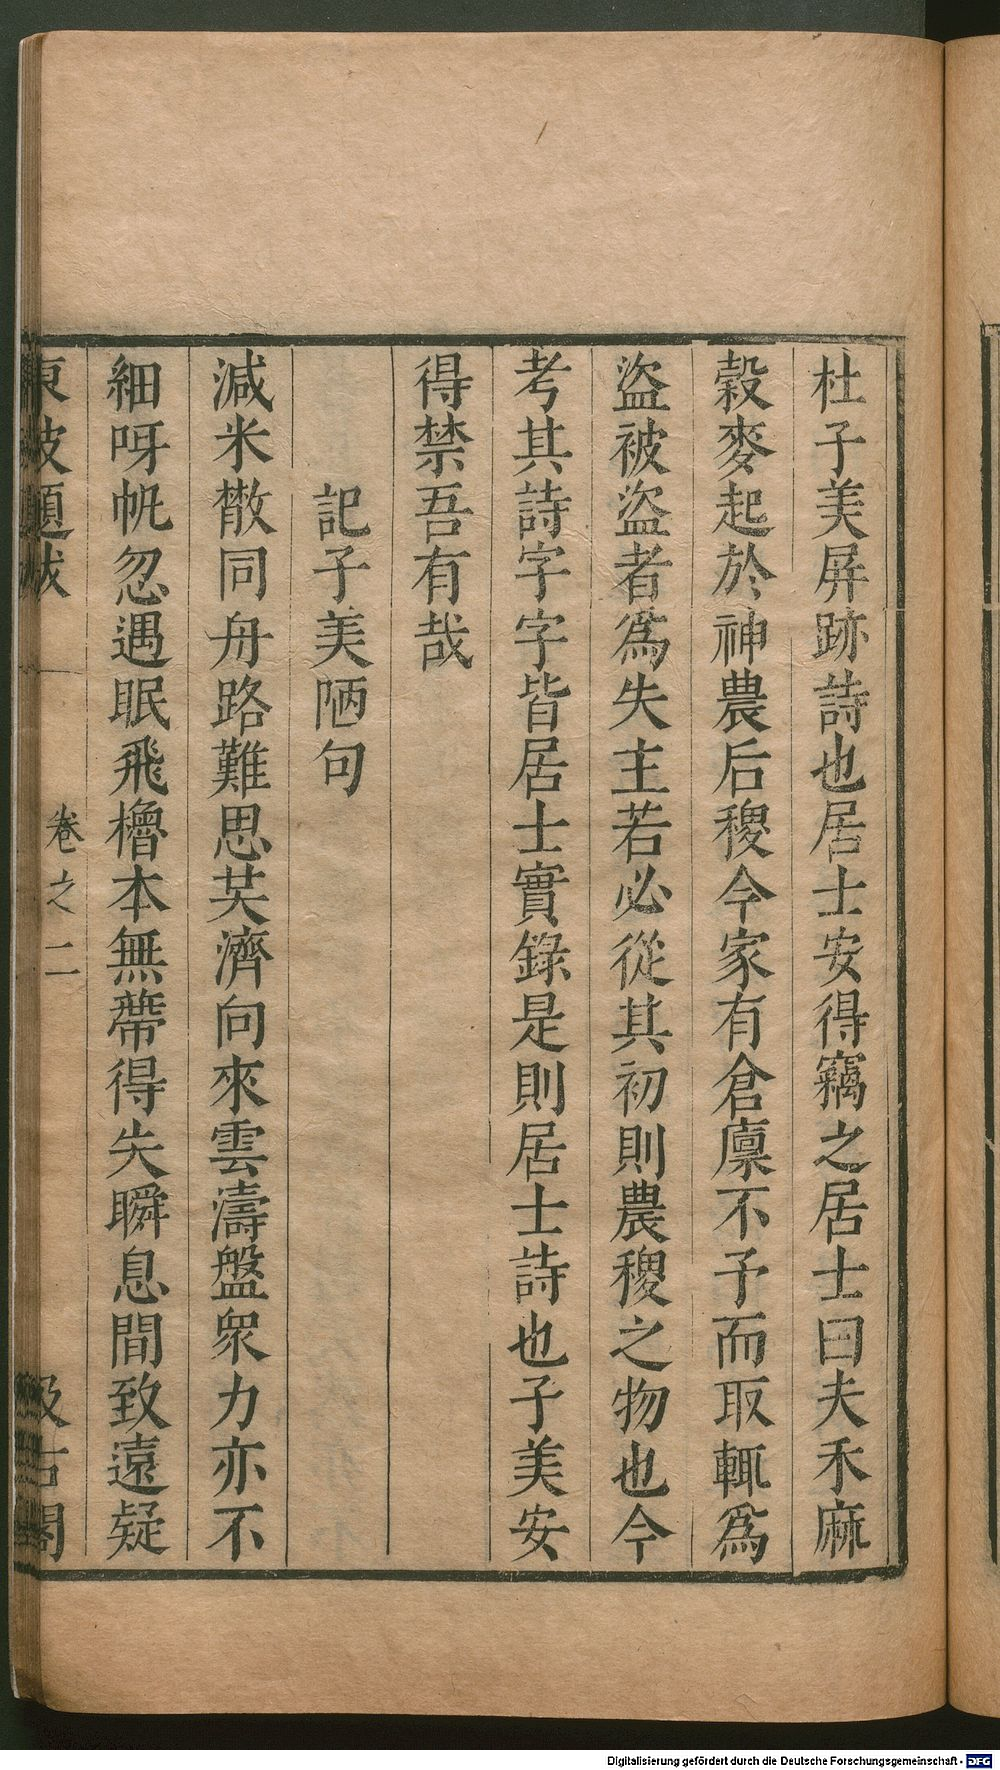 杜子美屏跡詩也居士安得竊之居士曰夫禾麻
穀麥起於神農后稷今家有倉廪不予而取輒爲
盜被盜者爲失主若必從其初則農稷之物也今
考其詩字字皆居士實錄是則居士詩也子美安
得禁吾有哉
記子美陋句
減米散同舟路難思共濟向來雲濤盤衆力亦不
細呀帆忽遇眠飛櫓本無蔕得失瞬息間致遠疑
東坡題跋
卷之二
汲古閣
Digitalisierung gefördert durch die Deutsche Forschungsgemeinschaft - DFG